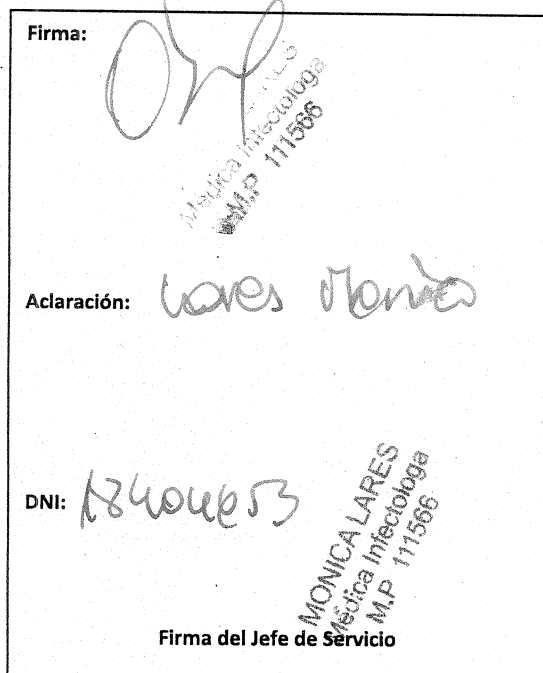 Firma:
Médica Infectologa
M.P 111566
Aclaración: Lares Monica
DNI:
MONICA LARES
Médica Infectologa
M.P 111566
Firma del Jefe de Servicio